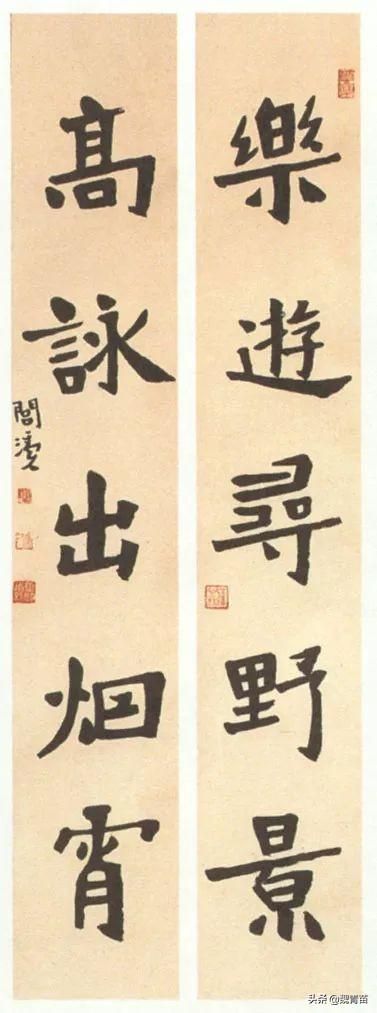 樂遊尋野景
高詠出烟霄
閻濤
头条 @魏青苗